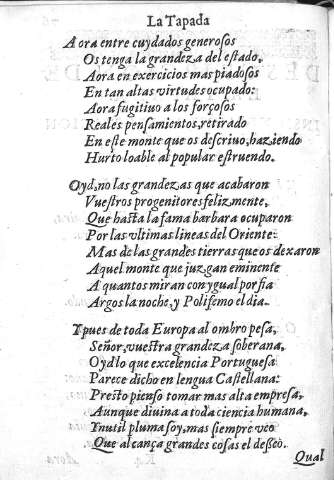 La Tapada
Aora entre cuydados generosos
Os tenga la grandeza del estado,
Aora en exercicios mas piadosos
En tan altas virtudes ocupado:
Aora fugitiuo a los forçosos
Reales pensamientos, retirado
En este monte que os descriuo, haziendo
Hurto loable al popular estruendo.
Oyd, no las grandezas que acabaron
Vuestros progenitores felizmente,
Que hasta la fama barbara ocuparon
Por las vltimas lineas del Oriente:
Mas de las grandes tierras que os dexaron
Aquel monte que juzgan eminente
A quantos miran con ygual porfia
Argos la noche, y Polifemo el dia.
Y pues de toda Europa al ombro pesa,
Señor, vuestra grandeza soberana,
Oyd lo que excelencia Portuguesa
Parece dicho en lengua Castellana:
Presto pienso tomar mas alta empresa,
Aunque diuina a toda ciencia humana,
Ynutil pluma soy, mas siempre veo
Que alcança grandes cosas el desseo.
Qual